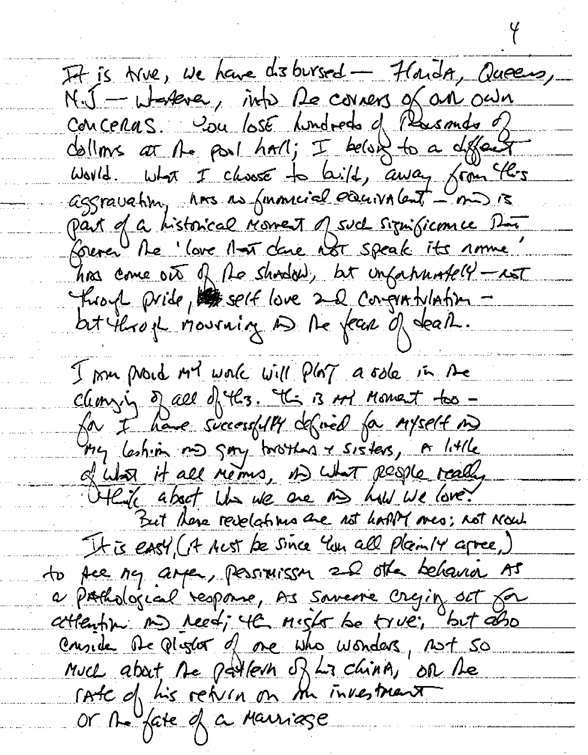 4
It is true, we have disbursed — Florida, Queens,
N.J — whatever, into the corners of our own
concerns. You lose hundreds of thousands of
dollars at the pool hall; I belong to a different
world. What I choose to build, away from this
aggravation, has no financial equivalent — and is
part of a historical moment of such significance that
forever the 'love that dare not speak its name'
has come out of the shadow, but unfortunately — not
through pride, self love and congratulation —
but through mourning and the fear of death.
I am proud my work will play a role in the
changing of all of this. This is my moment too —
for I have successfully defined for myself and
my lesbian and gay brothers & sisters, a little
of what it all means, and what people really
think about who we are and how we love.
But these revelations are not happy ones; not now
It is easy, (it must be since you all plainly agree,)
to see my anger, pessimissm and other behavior as
a pathological response, as someone crying out for
attention and need; this might be true; but also
consider the plight of one who wonders, not so
much about the pattern of his china, or the
rate of his return on an investment
or the fate of a marriage